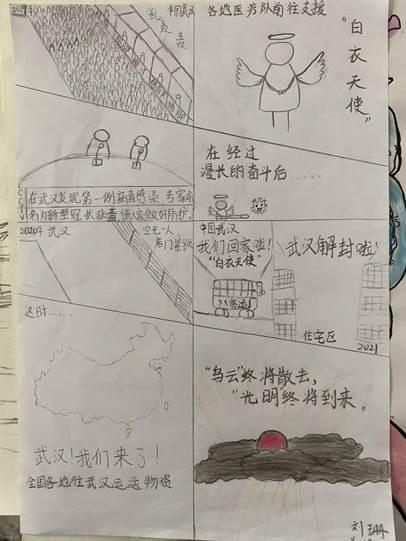 2019年
中国武汉
各地医疗队前往支援
“白衣天使”
CCTV
在武汉发现第一例病毒感染 专家命
名为新型冠状病毒 请大家做好防护。
在经过
漫长的奋斗后……
2020年 武汉
空无一人
中国武汉
我们回家啦!
“白衣天使”
武汉解封啦!
住宅区
2021
这时……
武汉!我们来了!
全国各地往武汉运送物资
“乌云”终将散去,
“光明”终将到来。
刘